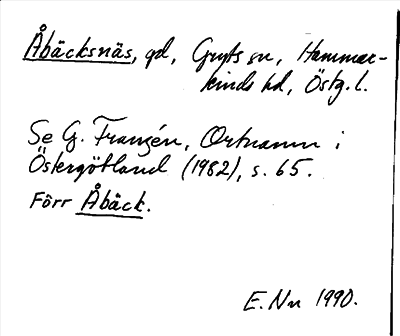 Åbäcksnäs, gd, Gryts sn, Hammar-
kinds hd, Östg. l.
Se G. Franzén, Ortnamn i
Östergötland (1982), s. 65.
Förr Åbäck.
E. Nn 1990.